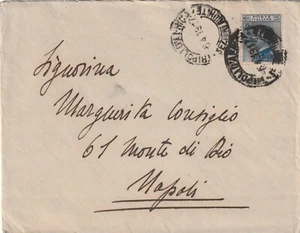 Signorina
Margherita Consiglio
61 Monte di Dio
Napoli